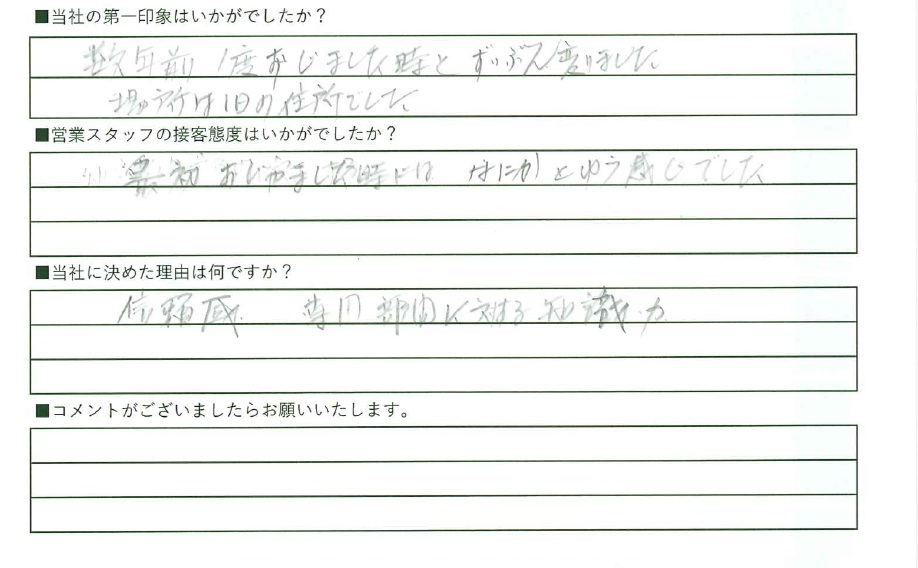 ■当社の第一印象はいかがでしたか？
数年前 1度おじましました時と ずいぶん変りました
場所は旧の住所でした
■営業スタッフの接客態度はいかがでしたか？
最初 おじゃました時には なにか とゆう感じでした
■当社に決めた理由は何ですか？
信頼感 専門部内に対する知識・力
■コメントがございましたらお願いいたします。